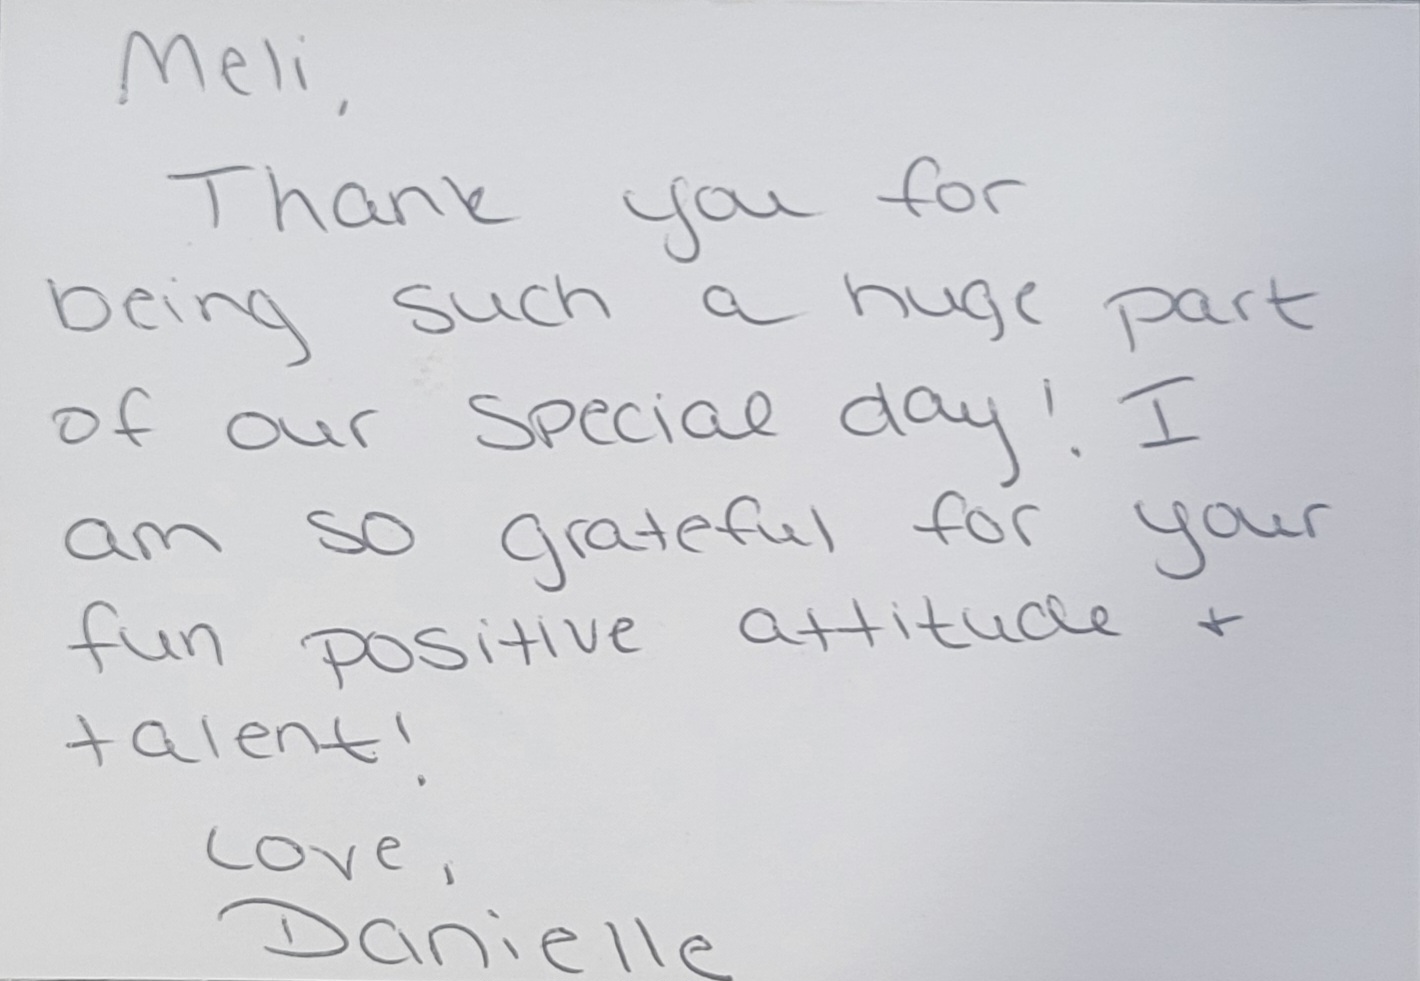 Meli,
Thank you for
being such a huge part
of our special day! I
am so grateful for your
fun positive attitude +
talent!
Love,
Danielle